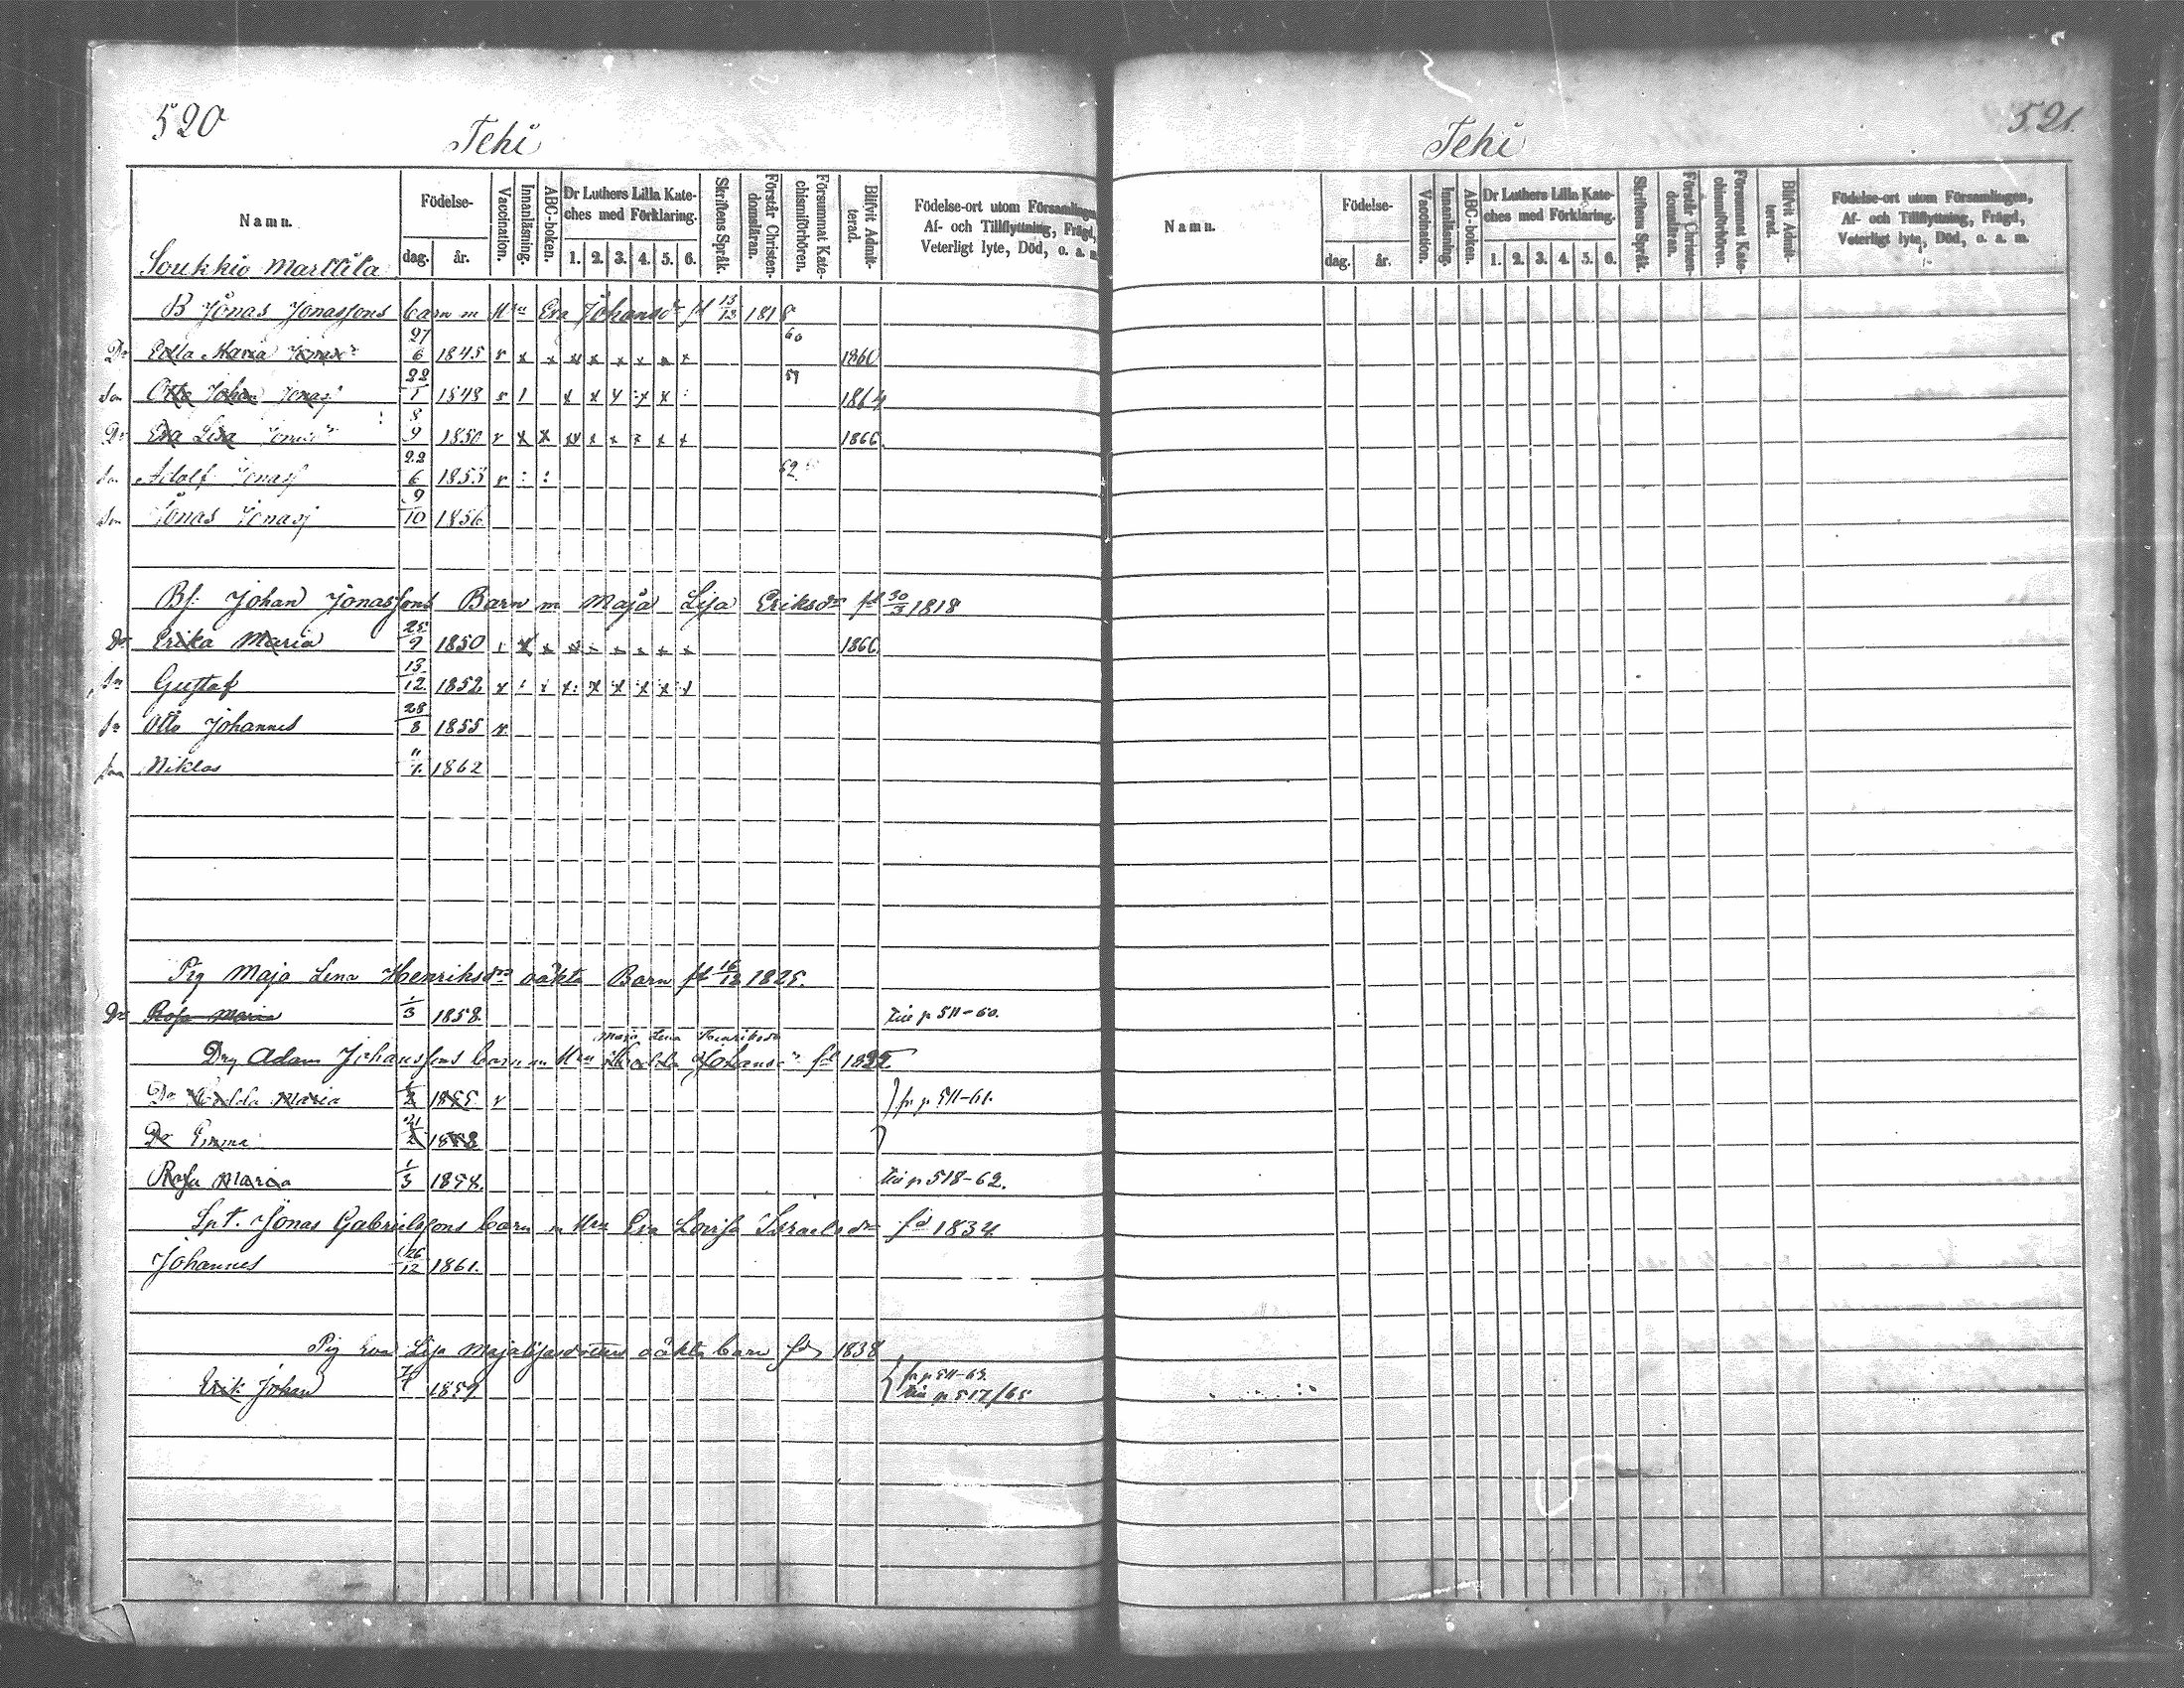 520
Tehi
Namn. Födelse- dag. år. Vaccination. Innanläsning. ABC-boken. Dr Luthers Lilla Kateches med Förklaring. 1. 2. 3. 4. 5. 6. Skriftens Språk. Förstår Christendomsläran. Försummat Katechismiförhören. Blifvit Admitterad. Födelse-ort utom Församlingen, Af- och Tillflyttning, Frägd, Veterligt lyte, Död, o. a. m.
Soukkio Marttila
B Jonas Jonassons barn m Hru Eva Johansdr fd 13/12 1818
60
Dr Maria 27/6 1845 v x x x x x x x x 1860
59
Son Otto Johan Jonass 22/1 1848 v 1 x x x x x 1864
Dr Eva Lisa 8/9 1850 v x x x x x x x x 1866.
Son Adolf Jonass 22/6 1853 v : : 62
Son Jonas Jonass 9/10 1856
Bs. Johan Jonassons Barn m Maja Lisa Eriksdr fd 30/3 1818
Dr Erika Maria 25/9 1850 x x x x x x x 1866.
Sn Gustaf 13/12 1852 v : x x x x x x x
Sn Otto Johannes 28/8 1855 v
Son Niklas 11/1 1862
Pig Maja Lena Henriksdrs oäkta Barn fd 16/12 1825.
Dr Rosa Maria 1/3 1858. Till p 511-60.
Maja Lena Henriksdr
Drg Adam Johanssons barn m Hru Hedda Johansdr fd
Dr Hedda Maria 1855 v } fr p. 511-61.
Dr Emma 21/2 1858
Rosa Maria 1/3 1858. Till p 518-62.
Spt. Jonas Gabrielssons barn m Hru Eva Lovisa Israelsdr fd 1834
Johannes 26/12 1861.
Pig Eva Lisa Majalisasdotters oäkta barn fd 1838
Erik Johan 1859 { fr p 511-63.
Till p 517/65
521.
Tehi
Namn. Födelse- dag. år. Vaccination. Innanläsning. ABC-boken. Dr Luthers Lilla Kateches med Förklaring. 1. 2. 3. 4. 5. 6. Skriftens Språk. Förstår Christendomsläran. Försummat Katechismiförhören. Blifvit Admitterad. Födelse-ort utom Församlingen, Af- och Tillflyttning, Frägd, Veterligt lyte, Död, o. a. m.